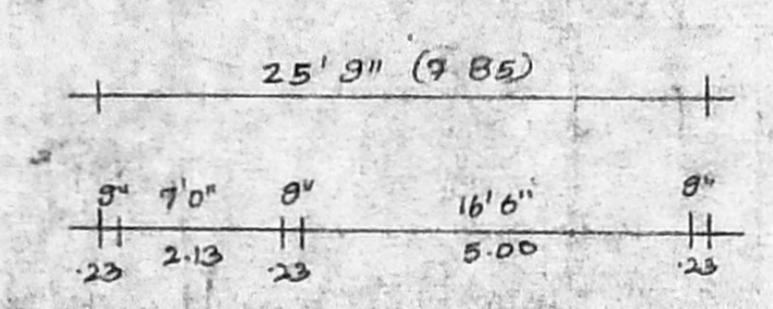 25' 9" (7 85)
9" 7'0" 9" 16' 6" 9"
.23 2.13 .23 5.00 .23